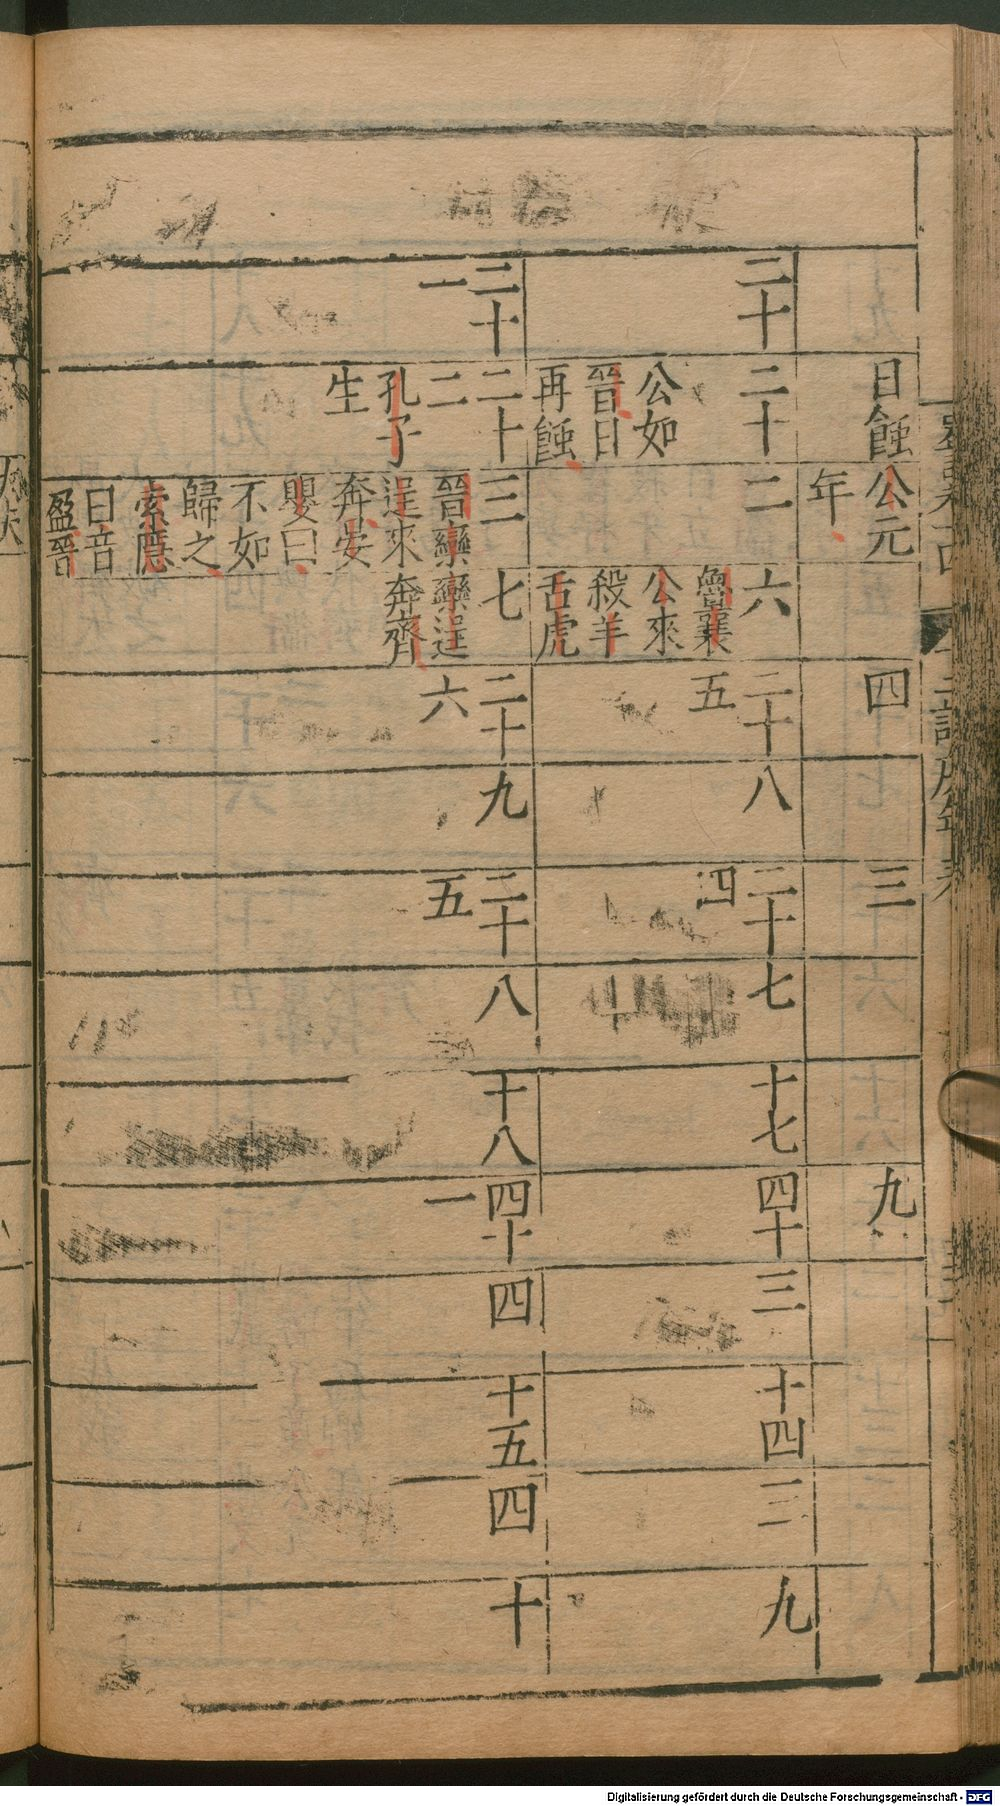 日蝕
公元年
四
三
九
二十
二十
公如晉日再蝕
二
六
魯襄公來殺羊舌虎
二十五
八
二十四
七
十七
四十
三
十四
三
九
二十一
二十二
孔子生
三
晉欒逞來奔晏嬰曰不如歸之索隱曰音盈晉
七
欒逞奔齊
二十六
九
二十五
八
十八
四十一
四
十五
四
十
Digitalisierung gefördert durch die Deutsche Forschungsgemeinschaft - DFG